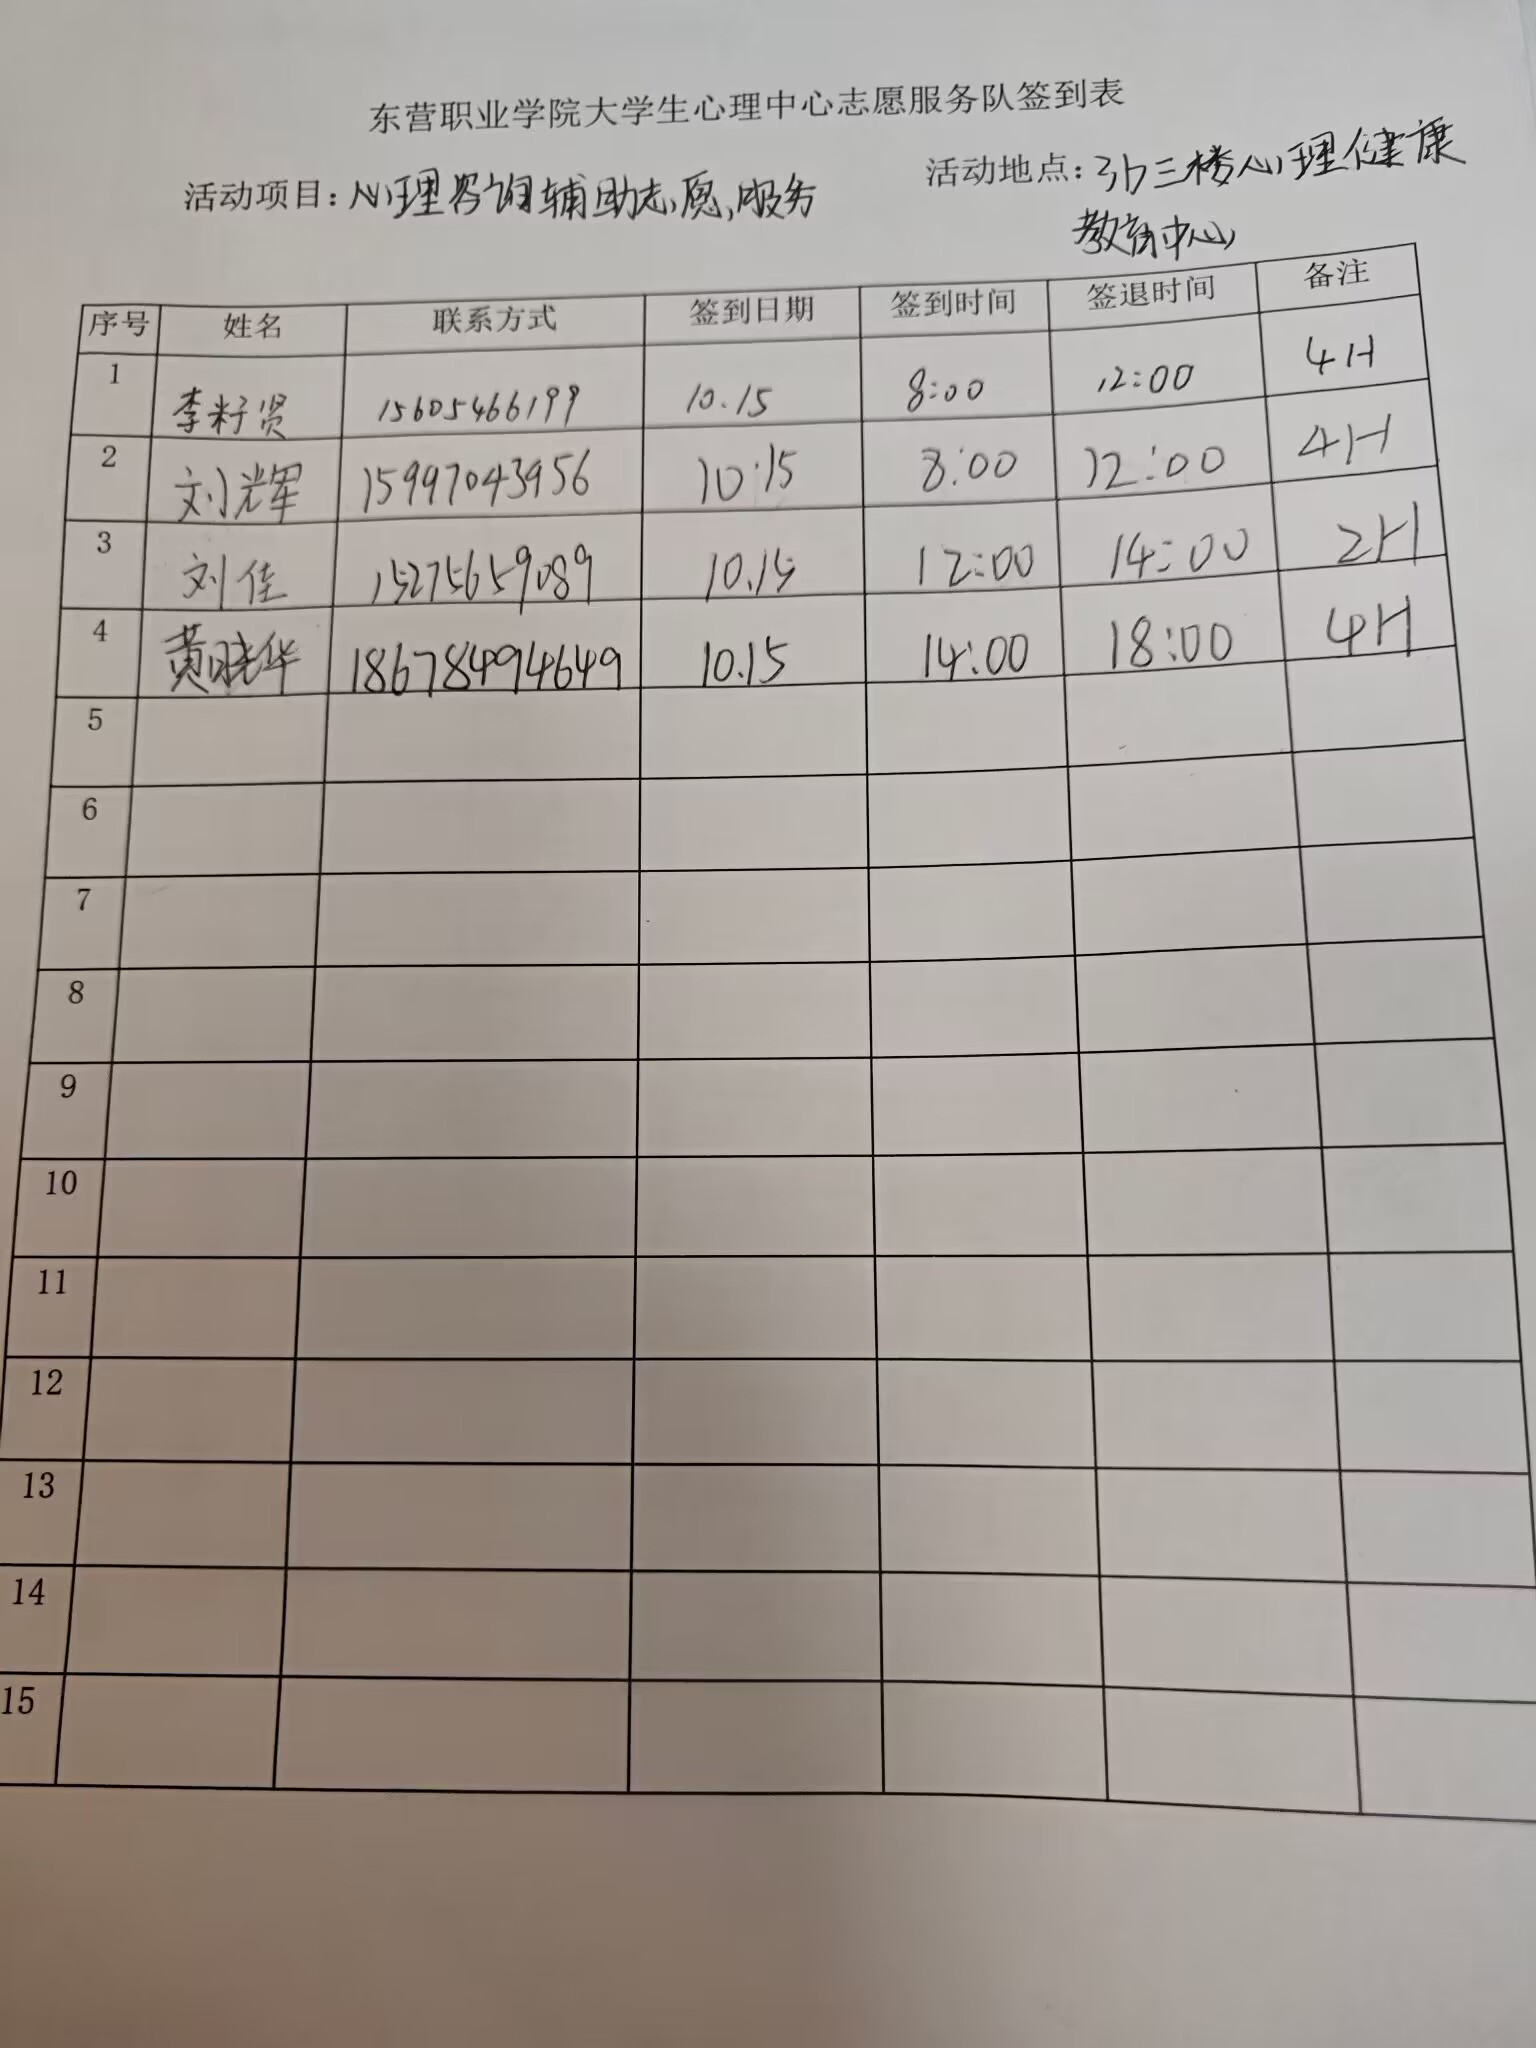 东营职业学院大学生心理中心志愿服务队签到表
活动项目：心理咨询辅助志愿服务 活动地点：3b三楼心理健康
教育中心
序号 姓名 联系方式 签到日期 签到时间 签退时间 备注
1 李籽贤 15605466199 10.15 8:00 12:00 4H
2 刘辉 15997043956 10:15 8:00 12:00 4H
3 刘佳 15275659089 10.15 12:00 14:00 2H
4 黄晓华 18678494649 10.15 14:00 18:00 4H
5
6
7
8
9
10
11
12
13
14
15